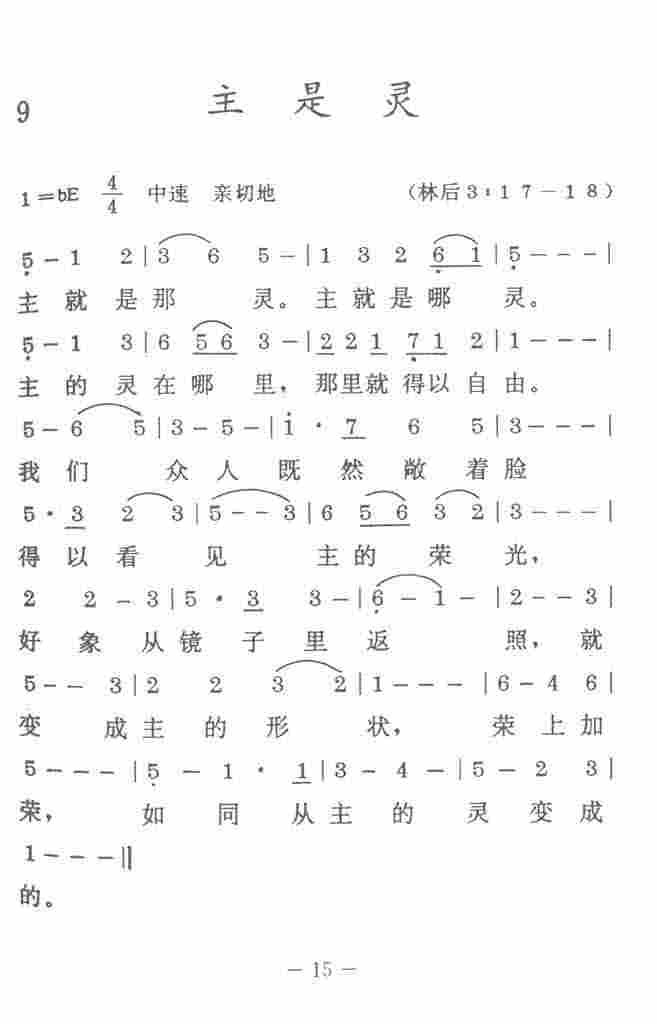 9 主是灵
1=bE 4/4 中速 亲切地 (林后3:17-18)
5̣ - 1 2 | 3 6 5 - | 1 3 2 6̣ 1 | 5̣ - - - |
主就是那 灵。主就是哪 灵。
5̣ - 1 3 | 6 5 6 3 - | 2 2 1 7̣ 1 2 | 1 - - - |
主的灵在哪 里，那里就得以自由。
5 - 6 5 | 3 - 5 - | i · 7 6 5 | 3 - - - |
我们 众人既然敞着脸
5 · 3 2 3 | 5 - - 3 | 6 5 6 3 2 | 3 - - - |
得以看 见 主的 荣 光，
2 2 - 3 | 5 · 3 3 - | 6̣ - 1 - | 2 - - 3 |
好象从镜子里返 照，就
5 - - 3 | 2 2 3 2 | 1 - - - | 6 - 4 6 |
变 成主的形 状， 荣上加
5 - - - | 5̣ - 1 · 1 | 3 - 4 - | 5 - 2 3 |
荣， 如同从主的灵变成
1 - - - ‖
的。
- 15 -